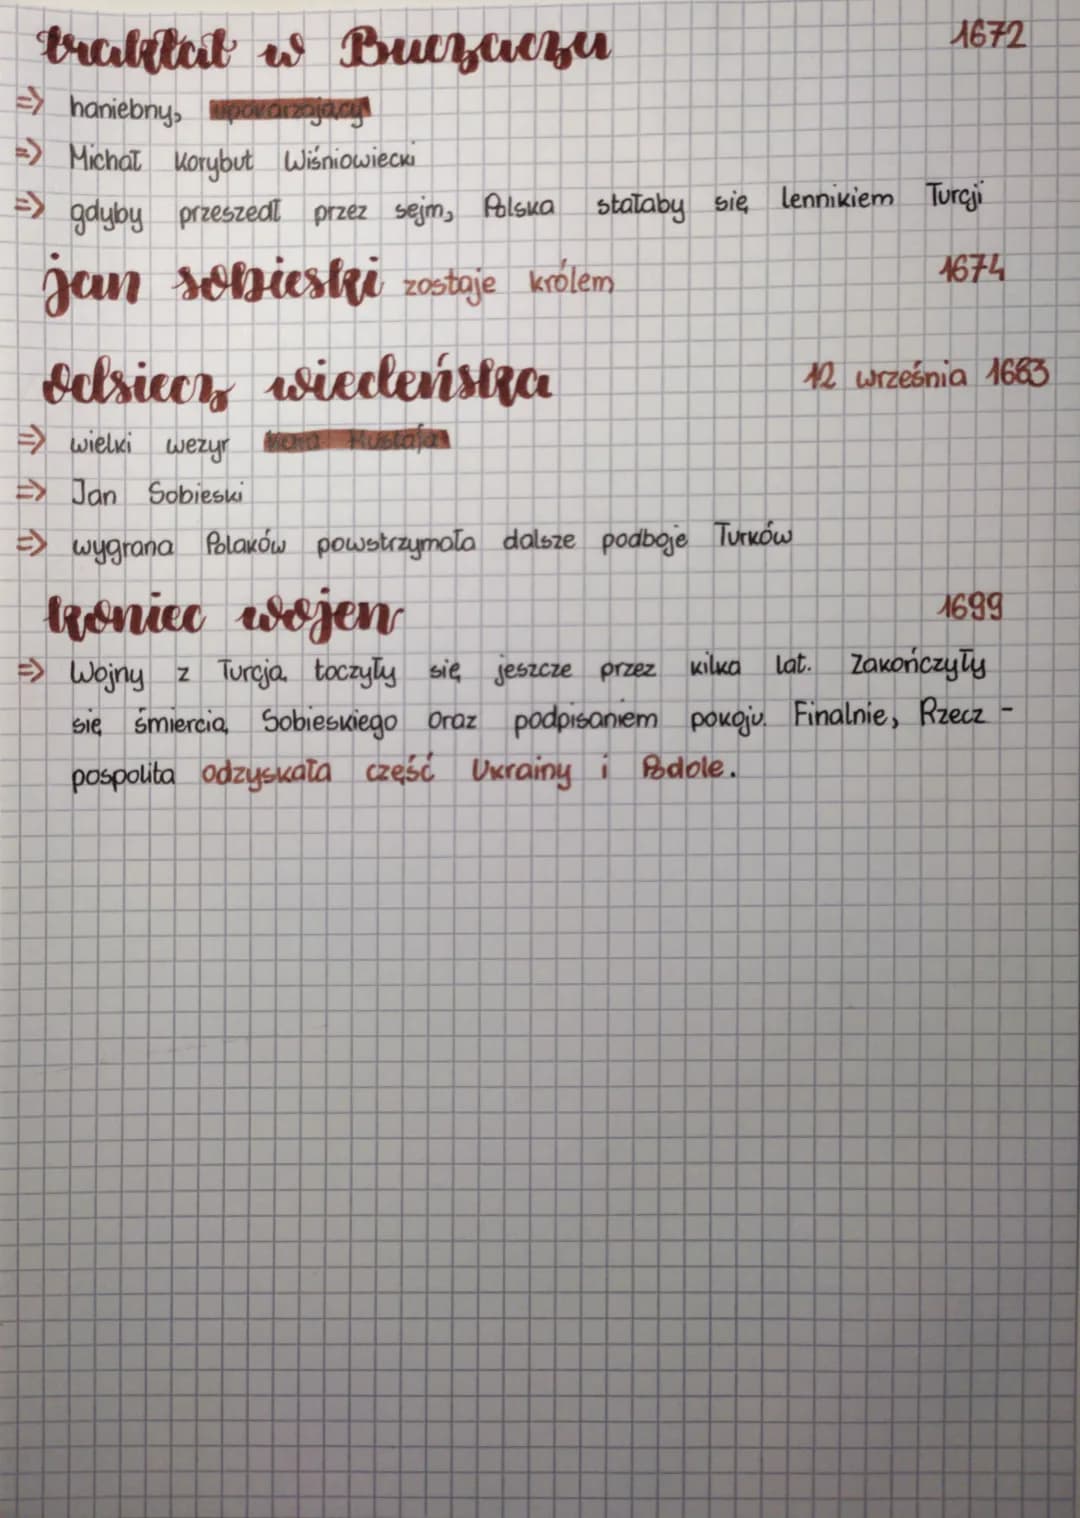 traktat w Buczaczu 1672
=> haniebny, upokarzający
=> Michał Korybut Wiśniowiecki
=> gdyby przeszedł przez sejm, Polska stałaby się lennikiem Turcji
jan sobieski zostaje królem 1674
odsiecz wiedeńska 12 września 1683
=> wielki wezyr Kara Mustafa
=> Jan Sobieski
=> wygrana Polaków powstrzymała dalsze podboje Turków
koniec wojen 1699
=> Wojny z Turcją toczyły się jeszcze przez kilka lat. Zakończyły
się śmiercią Sobieskiego oraz podpisaniem pokoju. Finalnie, Rzecz -
pospolita odzyskała część Ukrainy i Podole.